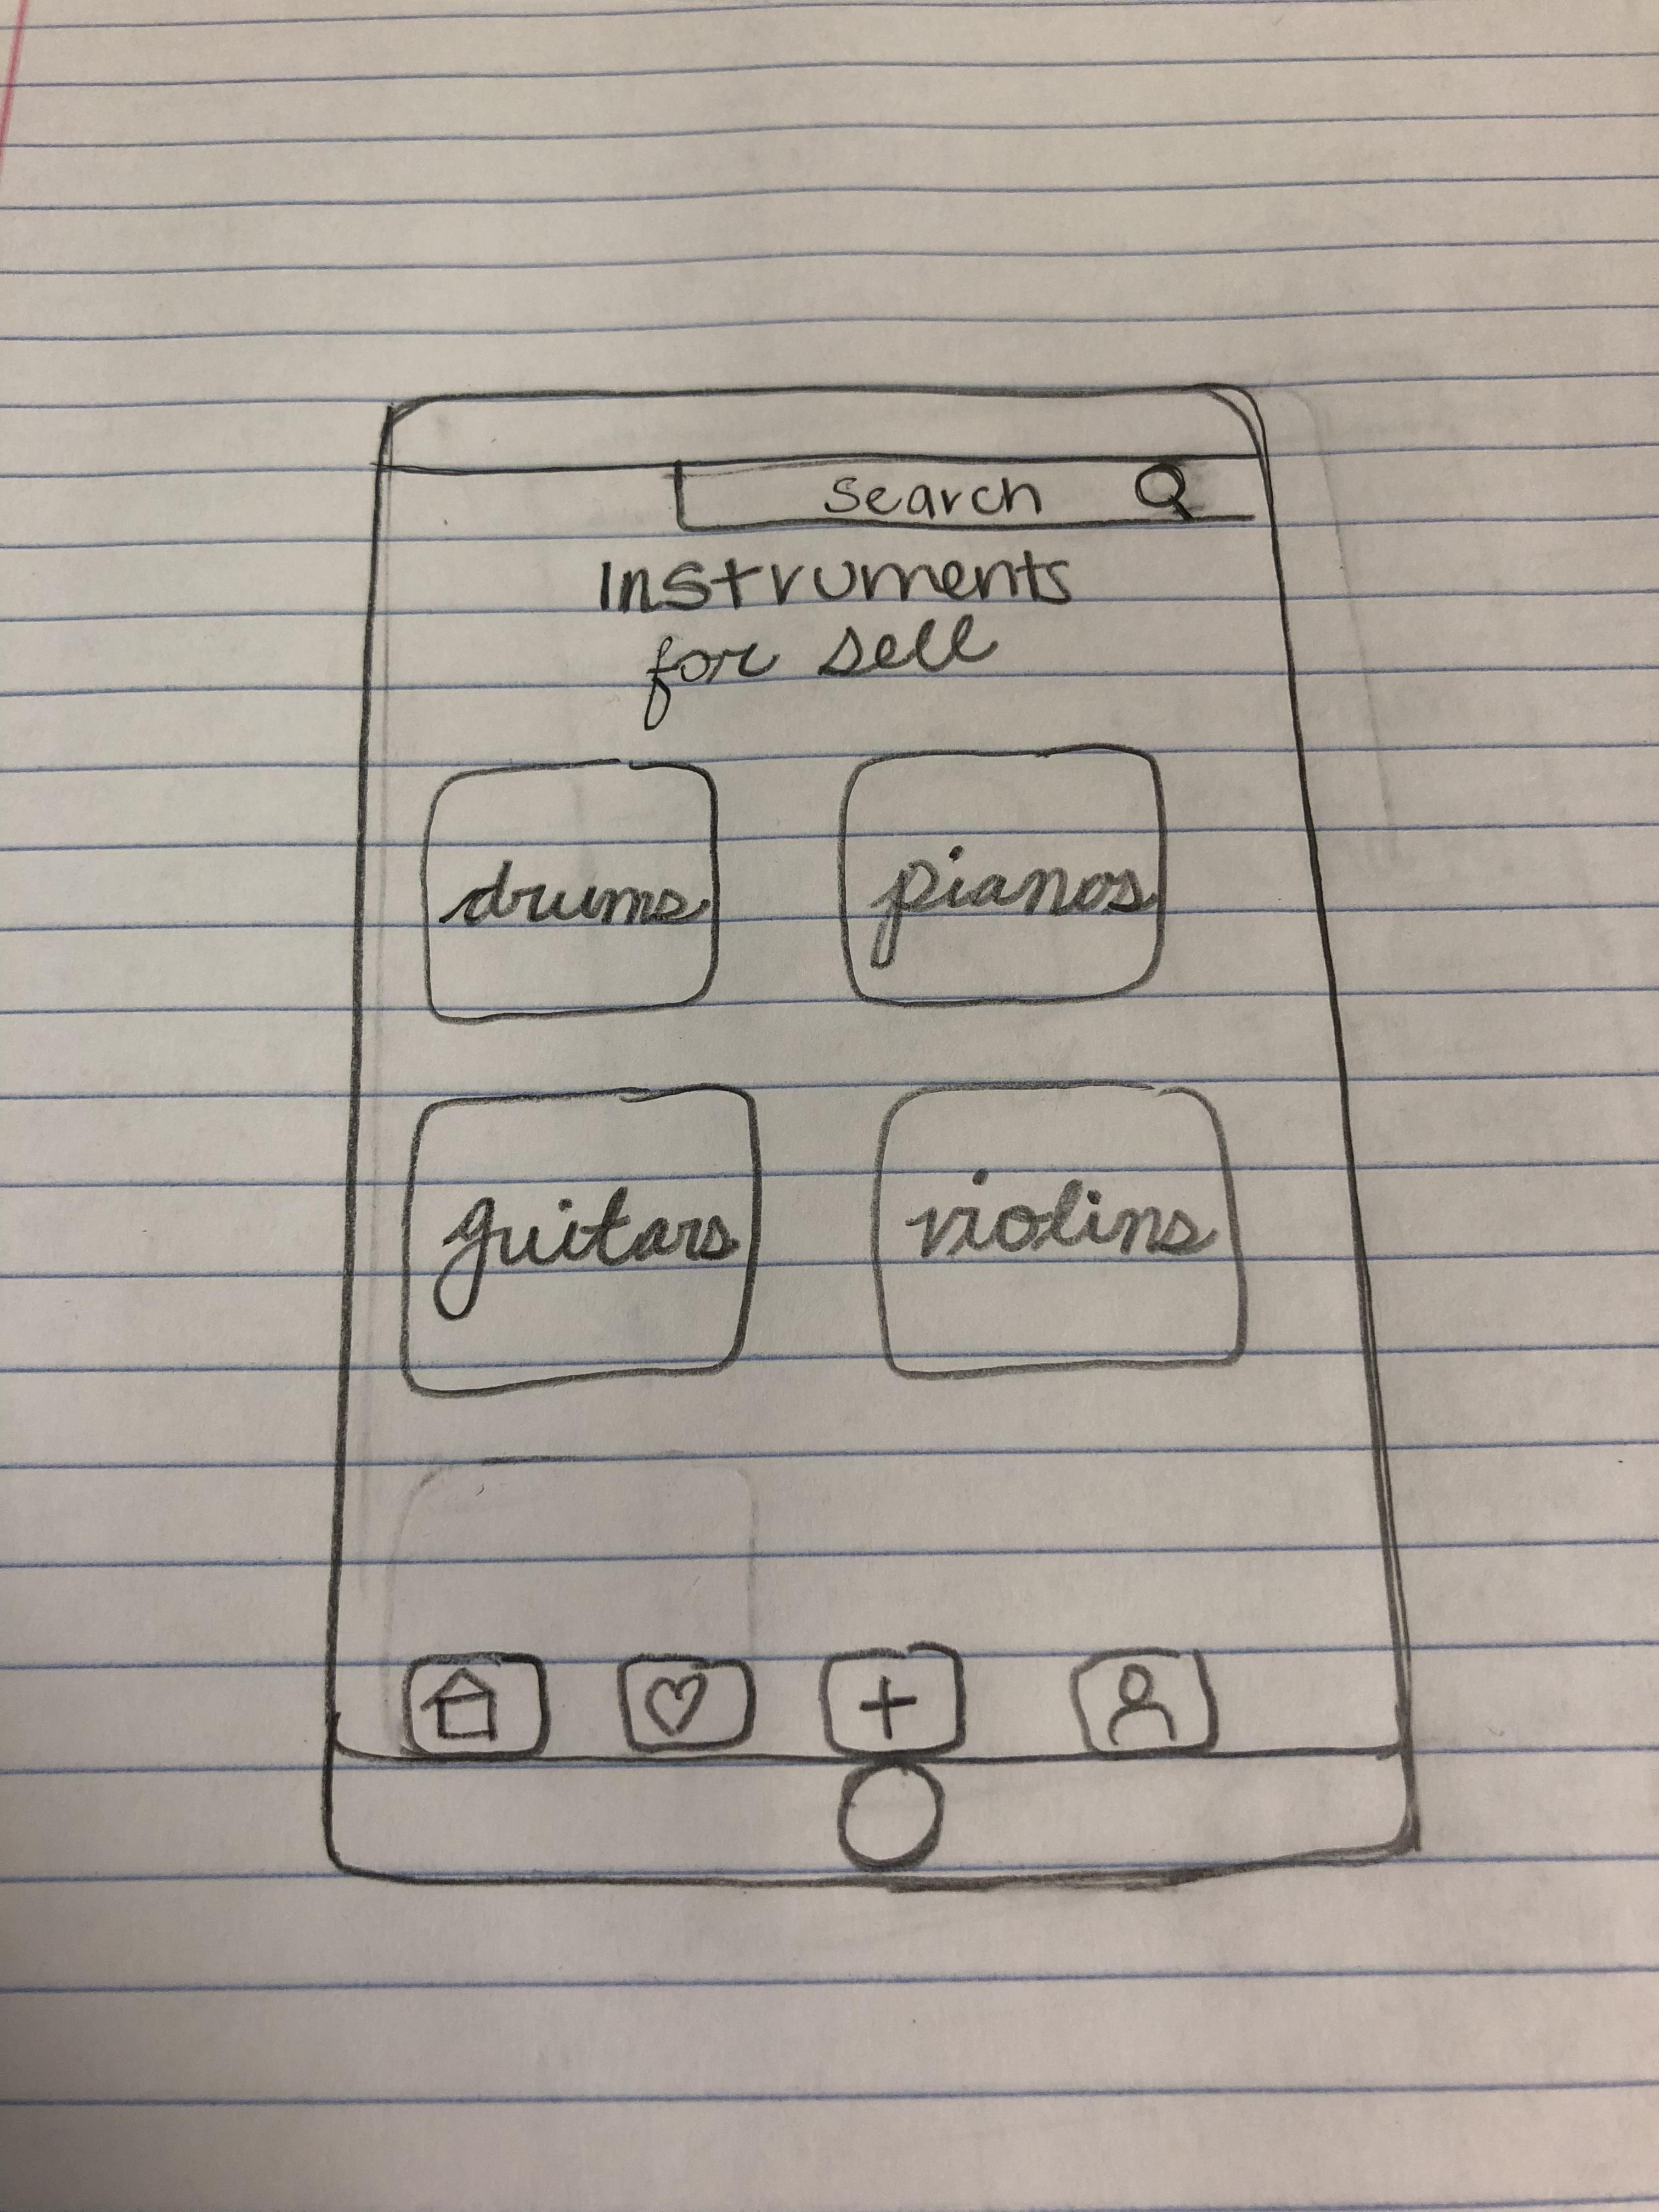 search
Instruments
for sell
drums
pianos
guitars
violins